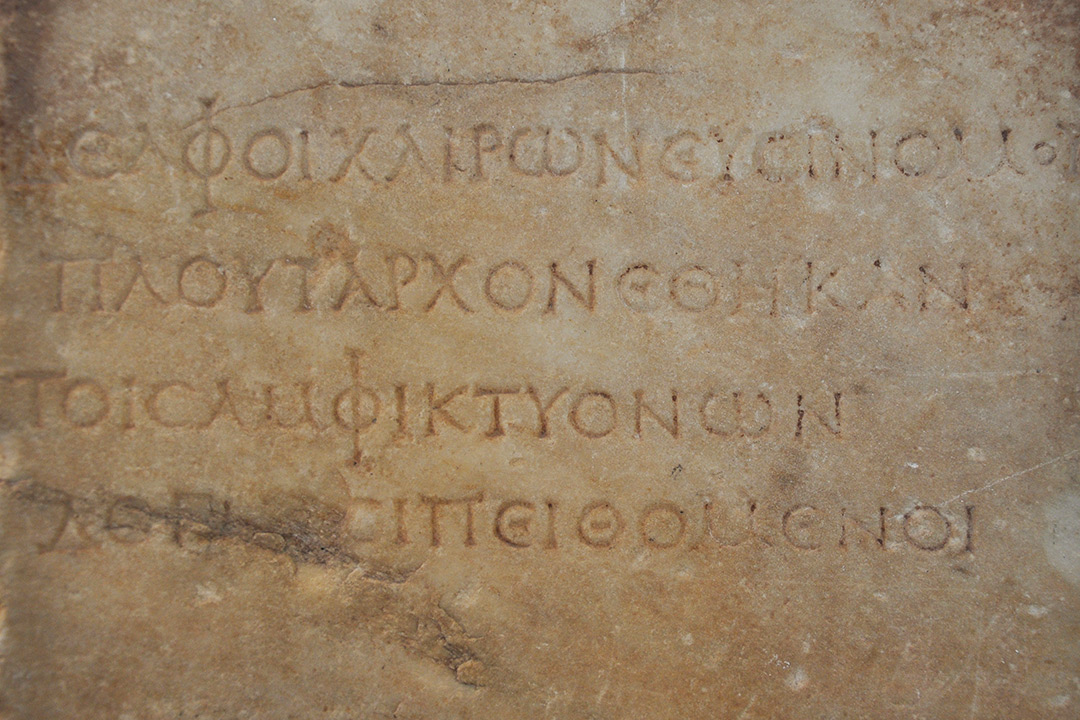 ΔΕΛΦΟΙ ΧΑΙΡΩΝΕΥCΙΝ
ΠΛΟΥΤΑΡΧΟΝ ΕΘΗΚΑΝ
ΤΟΙC ΑΜΦΙΚΤΥΟΝΩΝ
ΠΕΙΘΟΜΕΝΟΙ